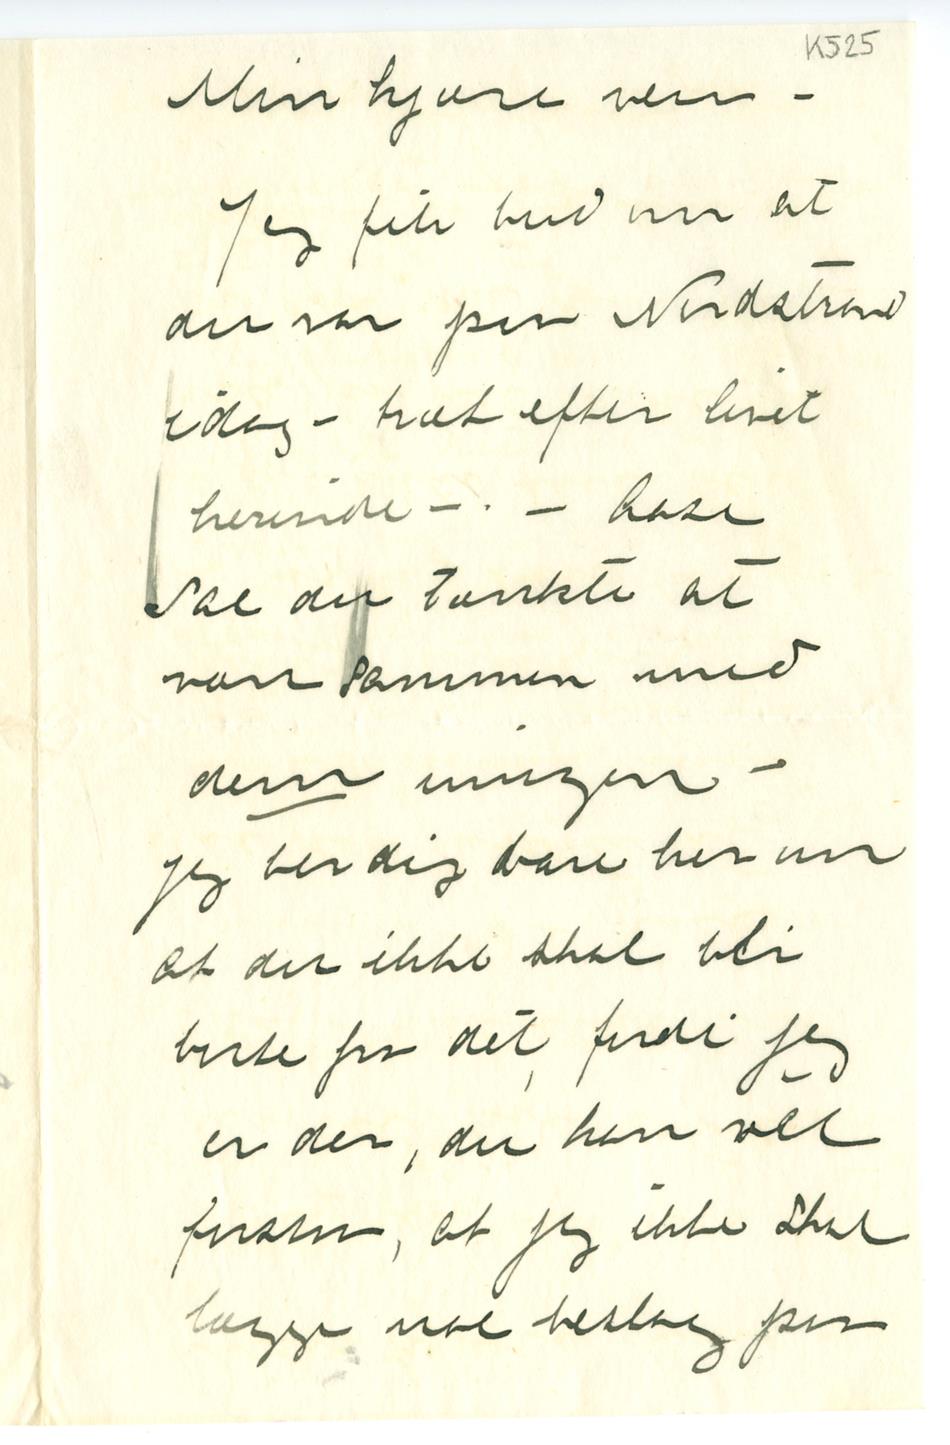 K525
Min kjære ven –
Jeg fik bud om at
du var paa Nordstrand
idag – træt efter livet
herinde – . – Aase
sae du tænkte at
være sammen med
dem imorgen –
jeg ber dig bare her om
at du ikke skal bli
borte fra det, fordi jeg
er der, du kan vel
forstaa, at jeg ikke skal
lægge noe beslag paa